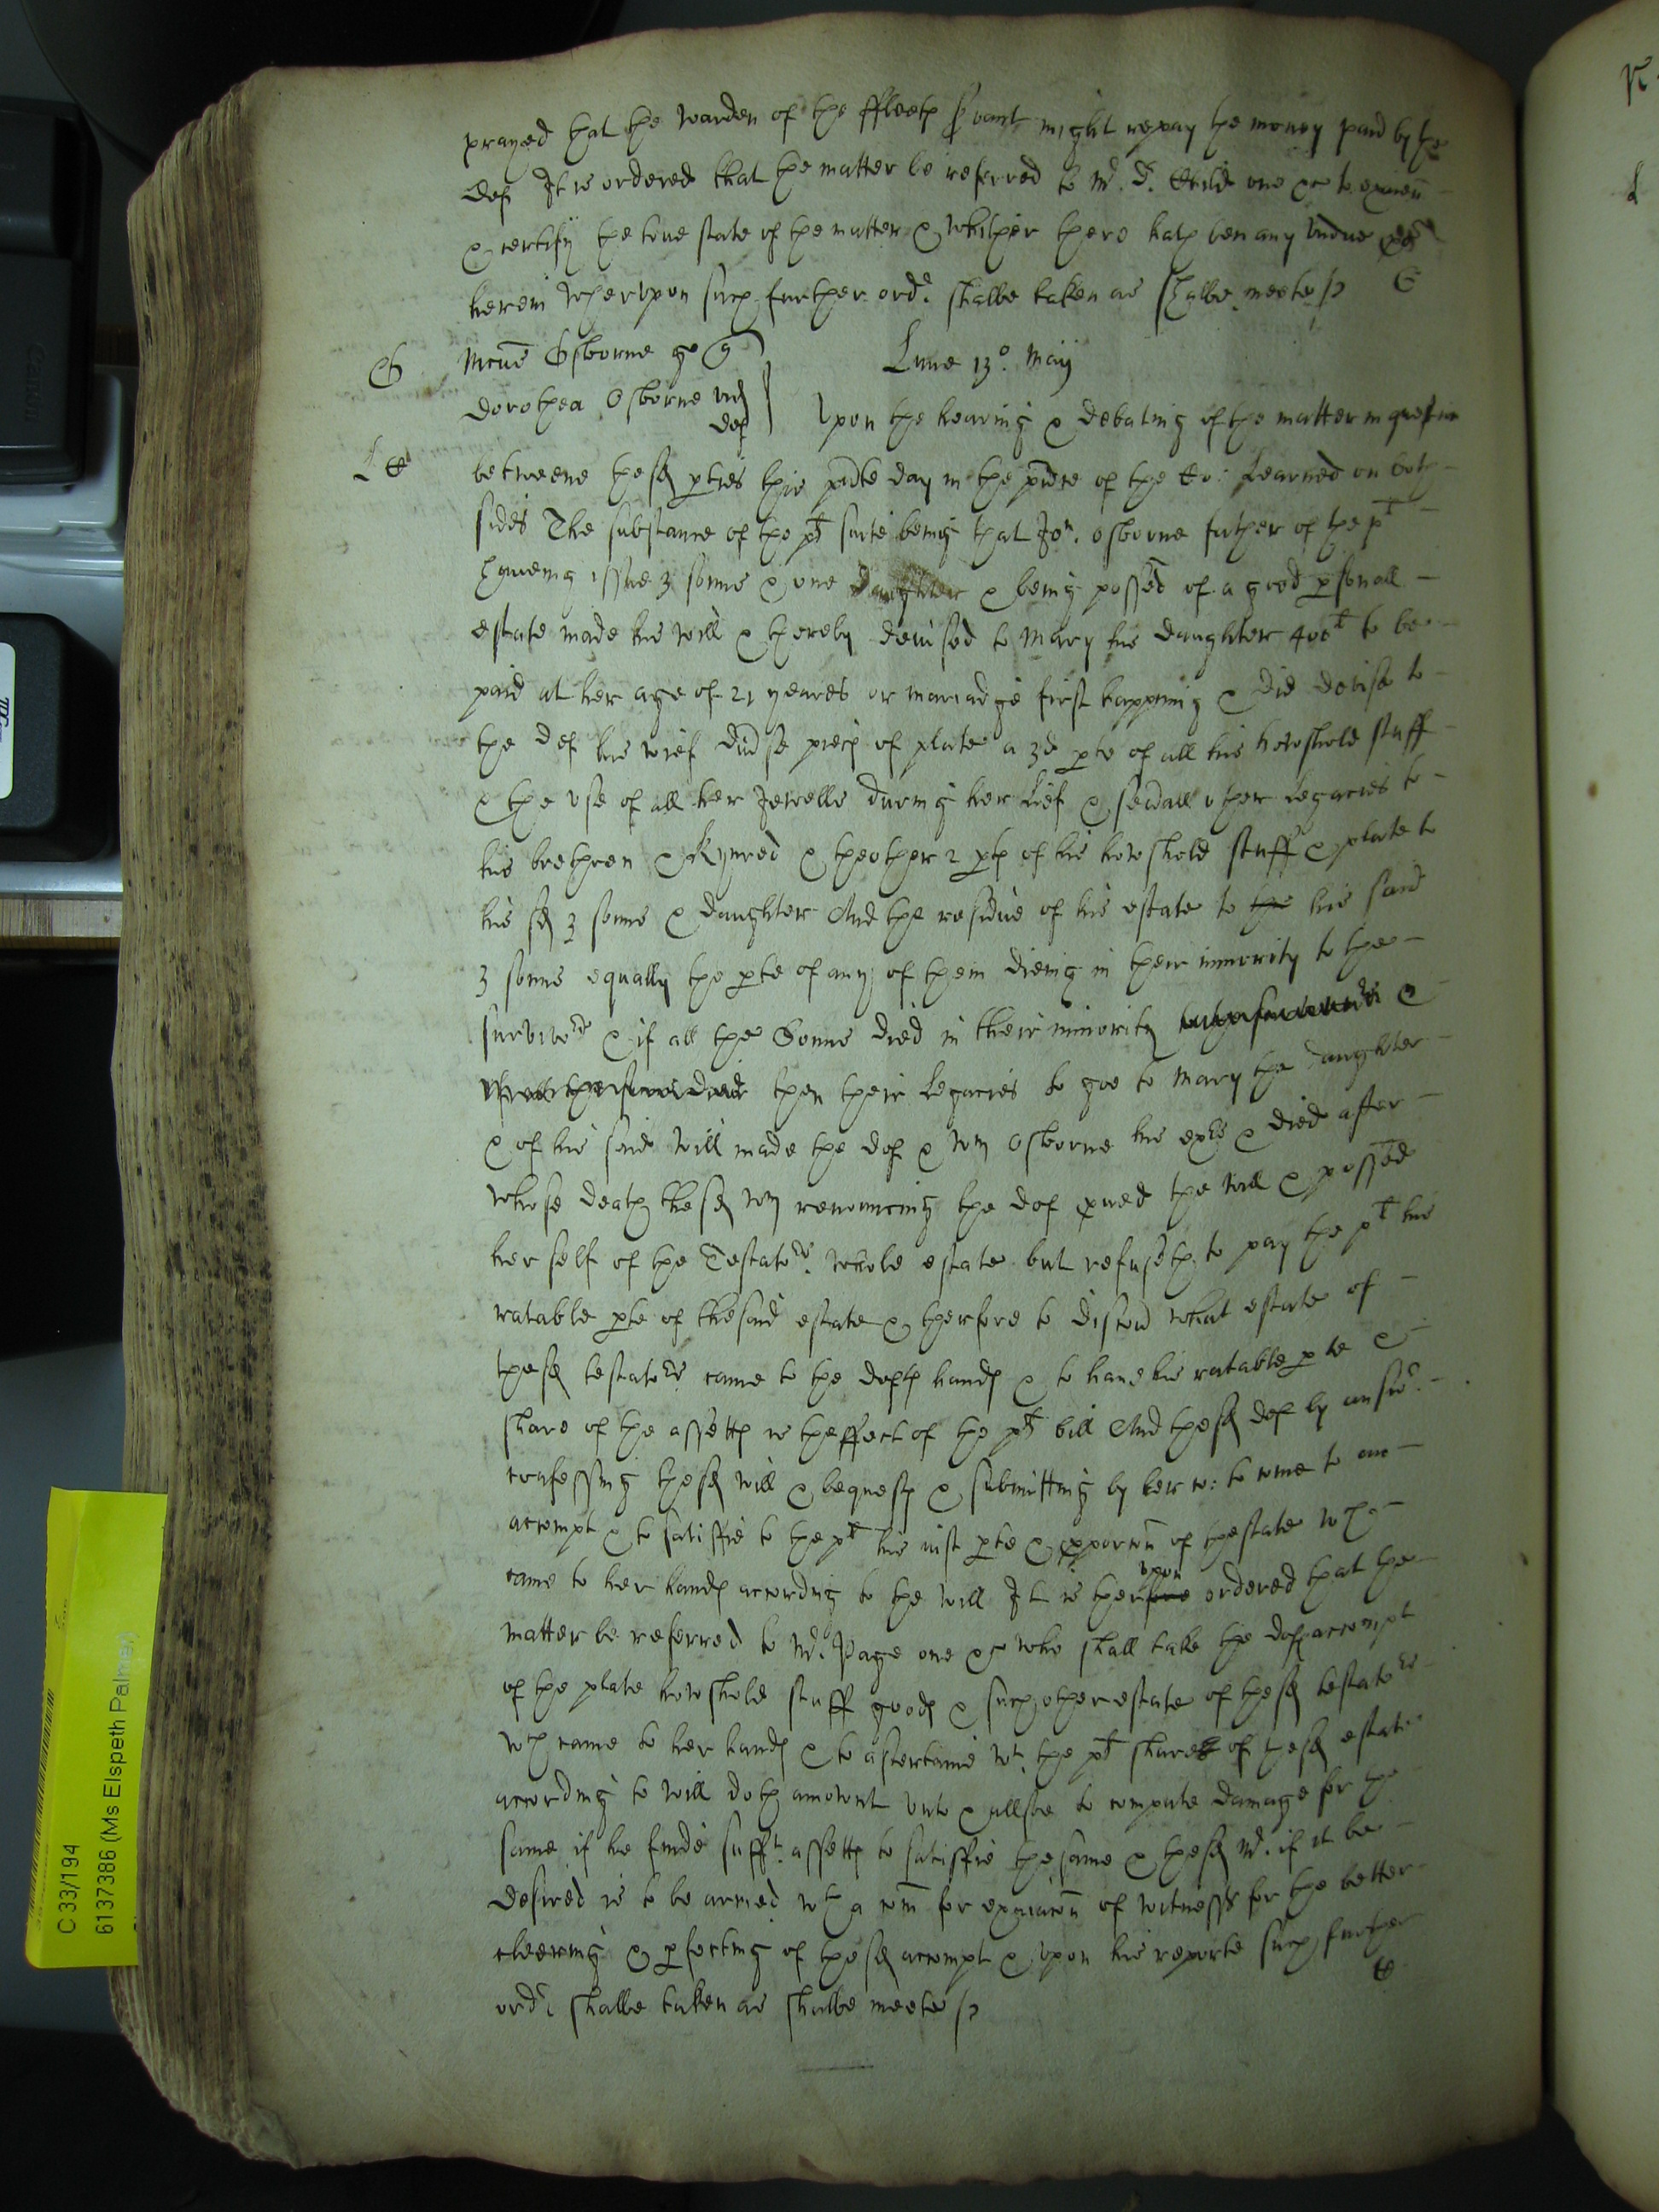 prayed that the warden of the ffleete svant might repay the money paid by the
def It is ordered that the matter be referred to Mr. D. Childe one &c to examn
& certify the true state of the matter & whither there hath ben any vndue
herein Whervpon such further ordr. shalbe taken as shalbe meete
Osborne
Lune 13o. Maij
Dorothea Osborne vid
def
Vpon the hearing & debating of the matter in question
betweene these pties this pnte day in the pnce of the Co: Learned on both
sides The substance of the plt suite being that Jon. Osborne father of the plt
haueing issue 3 sonns & one daughter & being possed of a good psonall
estate made his will & therby deuised to Mary his daughter 400l to be
paid at her age of 21 yeares or mariadge first happning & did devise to
the def his wief div'se piec of plate a 3d pte of all his howshold stuff
& the vse of all her Jewells during her lief & seu'all other legacies to
his brethren & Kynred & theother 2 pts of his howshold stuff & plate to
his sd 3 sonns & daughter And the residue of his estate to the his said
3 sonns equally the pte of any of them dieing in their minority to the
survivors & if all the Sonns died in their minority &
then their legacies to goe to Mary the daughter
& of his said will made the def & Wm Osborne his exrs & died after
whose death the sd Wm renouncing the def pued the will & possed
her self of the Testators. whole estate but refuseth to pay the plt his
ratable pte of thesaid estate & therfore to discou what estate of
the sd testators. came to the defts hands & to haue his ratable pte &
share of the assetts is theffect of the plt bill And the sd def by answr.
confessing the sd will & bequests & submitting by her co: to come to an
accompt & to satisfie to the plt his iust pte & pporcon of thestate wch
came to her hands according to the will It is therfore vpon ordered that the
matter be referred to Mr. Page one &c who shall take the defs accompt
of the plate howshold stuff goods & such other estate of the sd testators
wch came to her hands & to ascertaine wt. the plt share of the sd estate
according to will doth amount vnto & allsoe to compute damage for the
same if he finde sufft. assetts to satisfie the same & the sd Mr. if it be
desired is to be armed wth a com for exaiacon of witnesses for the better
cleering & pfecting of the sd accompt & vpon his reporte such further
ordr shalbe taken as shalbe meete
C 33/194
6137386 (Ms Elspeth Palmer)
Canon